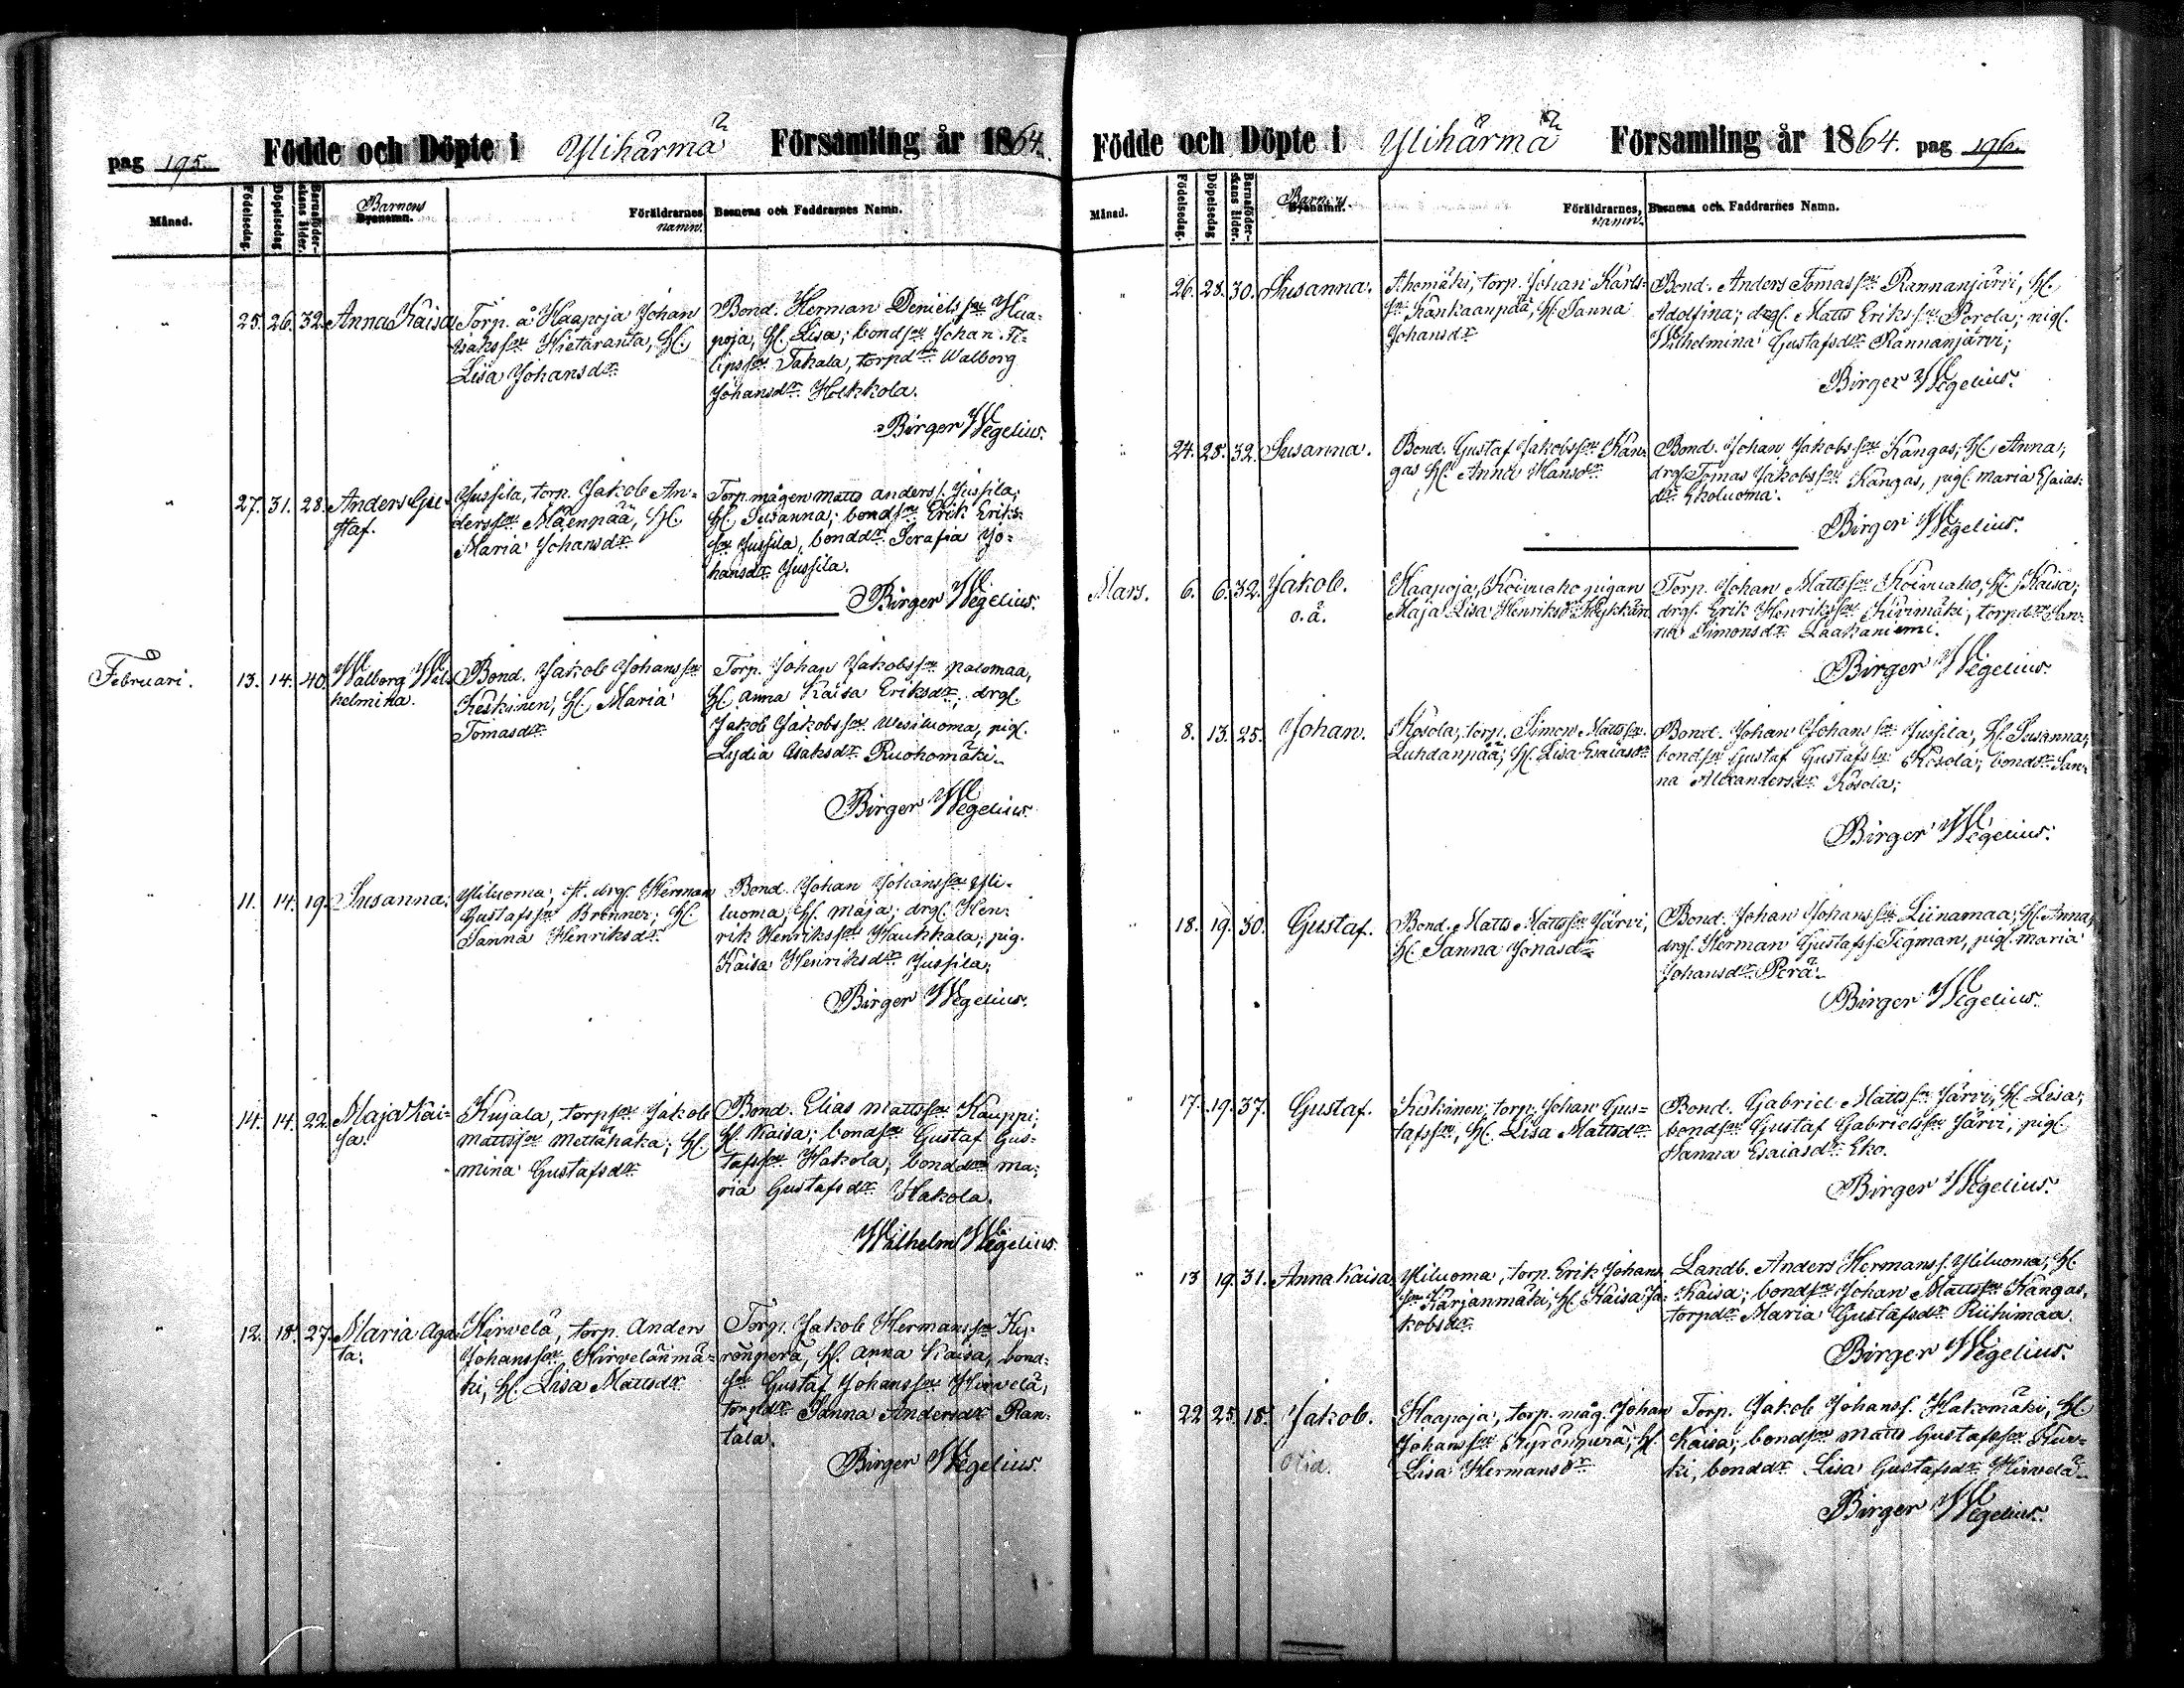 pag 195. Födde och Döpte i Ylihärmä Församling år 1864.
Månad. Födelsedag. Döpelsedag Barnaföderskans ålder. Barnens Byanamn. Föräldrarnes namn. Barnens och Faddrarnes Namn.
" 25. 26. 32. Anna Kaisa
Torp. å Haapoja Johan
Isaksson Hietaranta, H.
Lisa Johansdr
Bond. Herman Denielsson Haa-
poja, H. Lisa; bondson Johan Fi-
lipsson Takala, torpdr Walborg
Johansdr Holkkola.
Birger Wegelius.
" 27. 31. 28. Anders Gu-
staf.
Jussila, torp. Jakob An-
dersson Mäenpää, H.
Maria Johansdr
Torp. mågen Matts Anders s. Jussila,
H. Susanna; bondson Erik Eriks-
son Jussila, bonddr Serafia Jo-
hansdr Jussila.
Birger Wegelius.
Februari. 13. 14. 40. Walborg Wil-
helmina.
Bond. Jakob Johansson
Keskinen, H. Maria
Tomasdr
Torp. Johan Jakobsson Palomaa,
H. Anna Kaisa Eriksdr; drgl.
Jakob Jakobsson Wesiluoma, pigl.
Lydia Isaksdr Ruohomäki.
Birger Wegelius.
" 11. 14. 19. Susanna.
Yliluoma, st. drgl. Herman
Gustafsson Brenner; H.
Sanna Henriksdr
Bond. Johan Johansson Yli-
luoma, H. Maja; drgl. Hen-
rik Henriksson Haukkala; pig.
Kaisa Henriksdr Jussila;
Birger Wegelius.
" 14. 14. 22. Maja Kai-
sa.
Kujala, torpson Jakob
Mattsson Mettähaka; H.
Mina Gustafsdr
Bond. Elias Mattsson Kauppi;
H. Kaisa; bondson Gustaf Gus-
tafsson Hakola, bonddr Ma-
ria Gustafsdr Hakola.
Wilhelm Wegelius.
" 12. 18. 27. Maria Aga-
ta.
Hirvelä, torp. Anders
Johansson Hirvelänmä-
ki, H. Lisa Mattsdr
Torp. Jakob Hermansson Ky-
rönperä, H. Anna Kaisa, bond-
son Gustaf Johansson Hirvelä,
torpdr Sanna Andersdr Ran-
tala.
Birger Wegelius.
Födde och Döpte i Ylihärmä Församling år 1864. pag 196.
Månad. Födelsedag. Döpelsedag Barnaföderskans ålder. Barnens Byanamn. Föräldrarnes, namn. Barnens och Faddrarnes Namn.
" 26. 28. 30. Susanna.
Ahomäki, torp. Johan Karls-
son Kankaanpää, H. Sanna
Johansdr
Bond. Anders Tomasson Rannanjärvi, H.
Adolfina; drgl. Matts Eriksson Porola; pigl.
Wilhelmina Gustafsdr Rannanjärvi;
Birger Wegelius.
" 24. 28. 32. Susanna.
Bond. Gustaf Jakobsson Kan-
gas, H. Anna Hansdr
Bond. Johan Jakobsson Kangas, H. Anna;
drgl. Tomas Jakobsson Kangas, pigl. Maria Esaias-
dr Ekoluoma.
Birger Wegelius.
Mars. 6. 6. 32. Jakob.
o.ä.
Haapoja, Koivuaho pigan
Maja Lisa Henriksdr Hykkön
Torp. Johan Mattsson Koivuaho, H. Kaisa;
drgl. Erik Henriksson Kivimäki, torpdr San-
na Simonsdr Laakaniemi.
Birger Wegelius.
" 8. 13. 25. Johan.
Kosola, torp. Simon Mattsson
Luhdanpää; H. Lisa Esaiasdr
Bond. Johan Johansson Jussila, H. Susanna;
bondson Gustaf Gustafsson Kosola; bonddr San-
na Alexandersdr Kosola;
Birger Wegelius.
" 18. 19. 30. Gustaf.
Bond. Matts Mattsson Järvi,
H. Sanna Jonasdr
Bond. Johan Johansson Liinamaa, H. Anna;
drgl. Herman Gustafss. Tegman, pigl. Maria
Johansdr Perä.
Birger Wegelius.
" 17. 19. 37. Gustaf.
Keskinen, torp. Johan Gus-
tafsson, H. Lisa Mattsdr
Bond. Gabriel Mattsson Järvi, H. Lisa;
bondson Gustaf Gabrielsson Järvi, pigl.
Sanna Esaiasdr Eko.
Birger Wegelius.
" 13 19. 31. Anna Kaisa
Yliluoma, torp. Erik Johans-
son Karjanmäki, H. Kaisa Ja-
kobsdr
Landb. Anders Hermanss. Yliluoma, H.
Kaisa; bondson Johan Mattsson Kangas,
torpdr Maria Gustafsdr Riihimaa.
Birger Wegelius.
" 22 25. 18. Jakob.
Haapoja, torp. måg. Johan
Johansson Kyrönperä; H.
Lisa Hermansdr
Torp. Jakob Johanss. Hakomäki, H.
Kaisa; bondson Matts Gustafsson Kur-
ki, bonddr Lisa Gustafsdr Hirvelä.
Birger Wegelius.